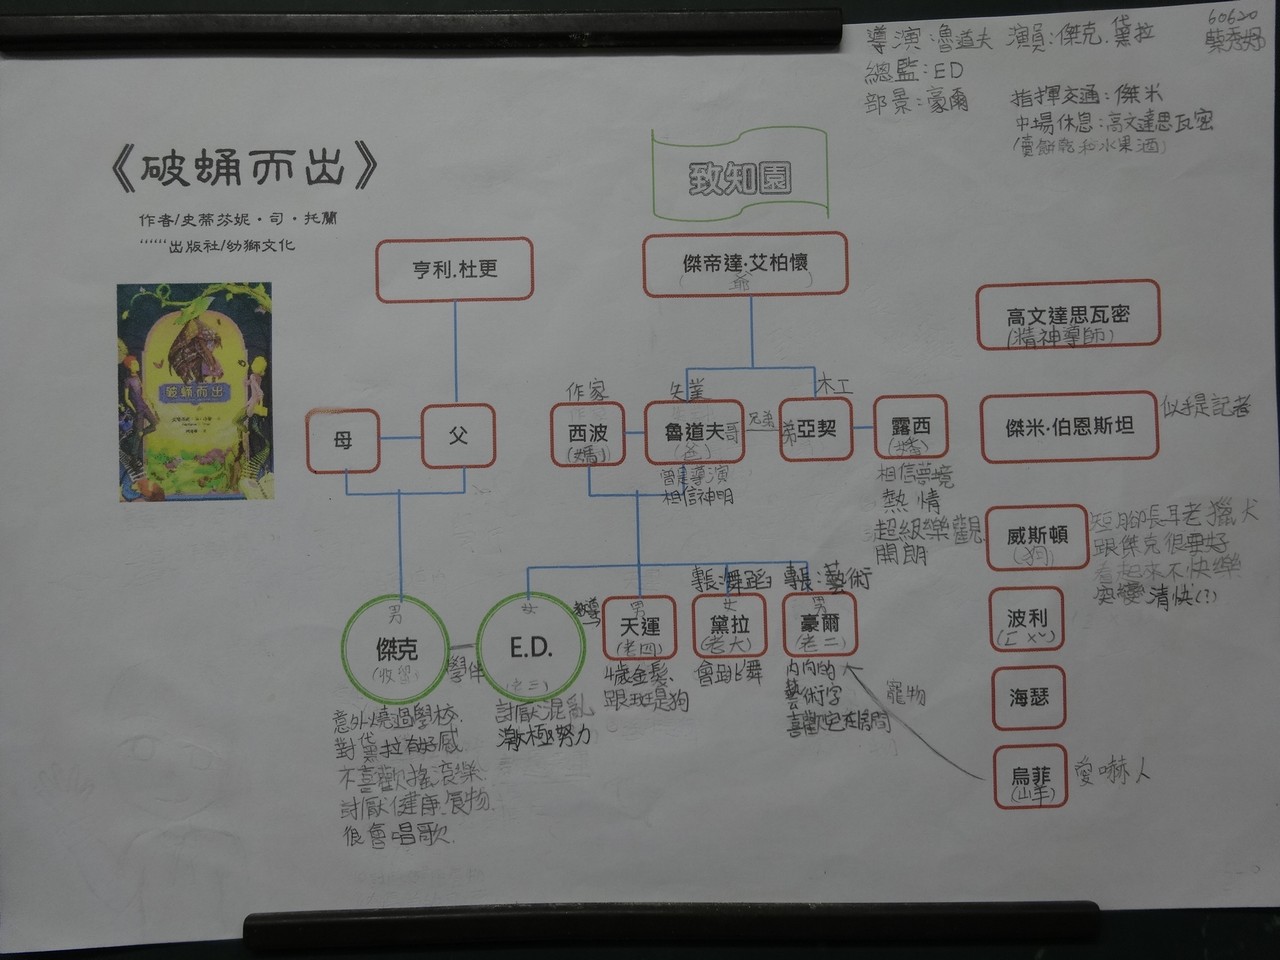 60620
導演:魯道夫 演員:傑克.黛拉
總監:ED
部景:豪爾 指揮交通:傑米
中場休息:高文達思瓦密
(賣餅乾和水果酒)
《破蛹而出》
作者/史蒂芬妮・司・托蘭
出版社/幼獅文化
破蛹而出
致知園
亨利.杜更
傑帝達·艾柏懷
(爺)
高文達思瓦密
(精神導師)
母
父
作家
西波
(媽)
失業
魯道夫哥
(爸)
曾是導演
相信神明
兄弟
木工
弟亞契
露西
相信夢境
熱情
超級樂觀
開朗
傑米·伯恩斯坦
似乎是記者
威斯頓
(狗)
短腳長耳老獵犬
跟傑克很要好
看起來不快樂
波利
海瑟
烏菲
(山羊)
愛嚇人
寵物
男
傑克
(收留)
學伴
意外燒過學校.
對黛拉有好感
不喜歡搖滾樂
討厭健康食物.
很會唱歌.
女
E.D.
(老三)
討厭混亂
激極努力
男
天運
(老四)
4歲金髮、
專長:舞蹈
女
黛拉
(老大)
會跳比舞
專長:藝術
男
豪爾
(老二)
內向的
藝術字
喜歡宅在房間